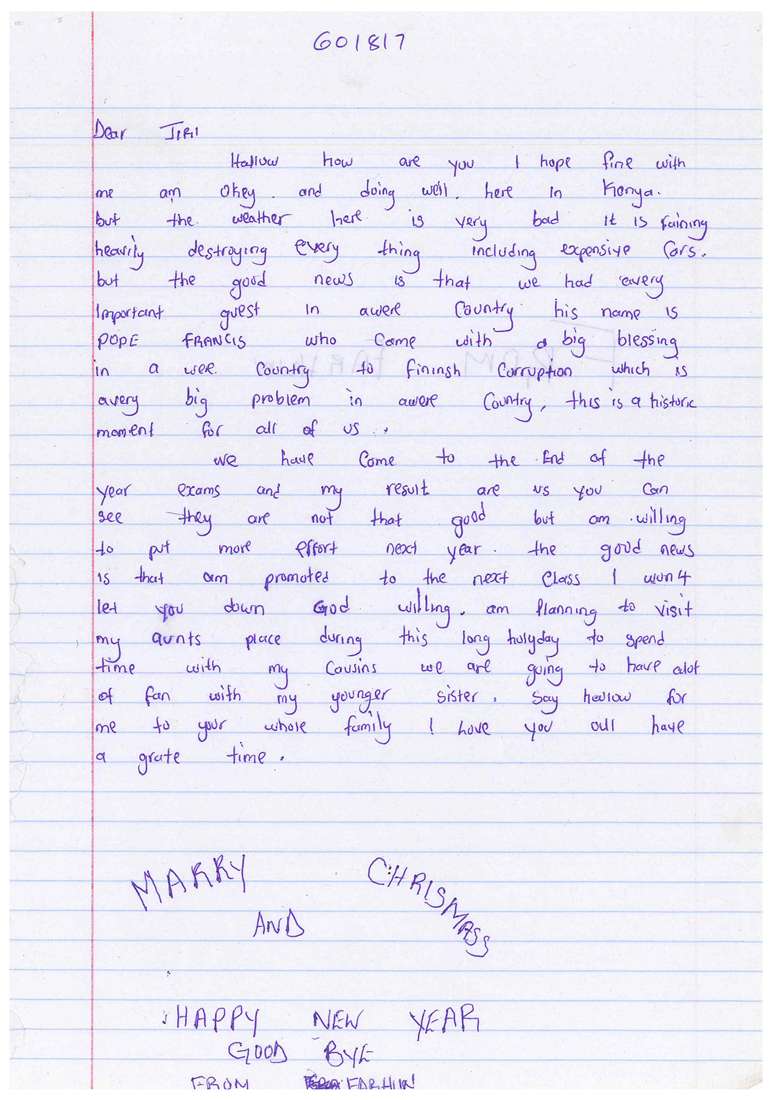 601817
Dear JIRI
Hallow how are you I hope fine with
me am Okey. and doing well. here in Kenya.
but the weather here is very bad it is raining
heavily destroying every thing including expensive Cars.
but the good news is that we had avery
Important guest in awere Country his name is
POPE FRANCIS who Came with a big blessing
in a wee. Country to fininsh Corruption which is
avery big problem in awere Country, this is a historic
moment for all of us..
we have Come to the End of the
year exams and my result are us you Can
see they are not that good but am willing
to put more effort next year. the good news
is that am promoted to the next Class I won4
let you down God willing. am planning to visit
my aunts place during this long holyday to spend
time with my Cousins we are going to have alot
of fan with my younger sister. Say hallow for
me to your whole family I Love you oull have
a grate time.
MARRY CHRISMASS
AND
HAPPY NEW YEAR
GOOD BYE
FROM FARHIN